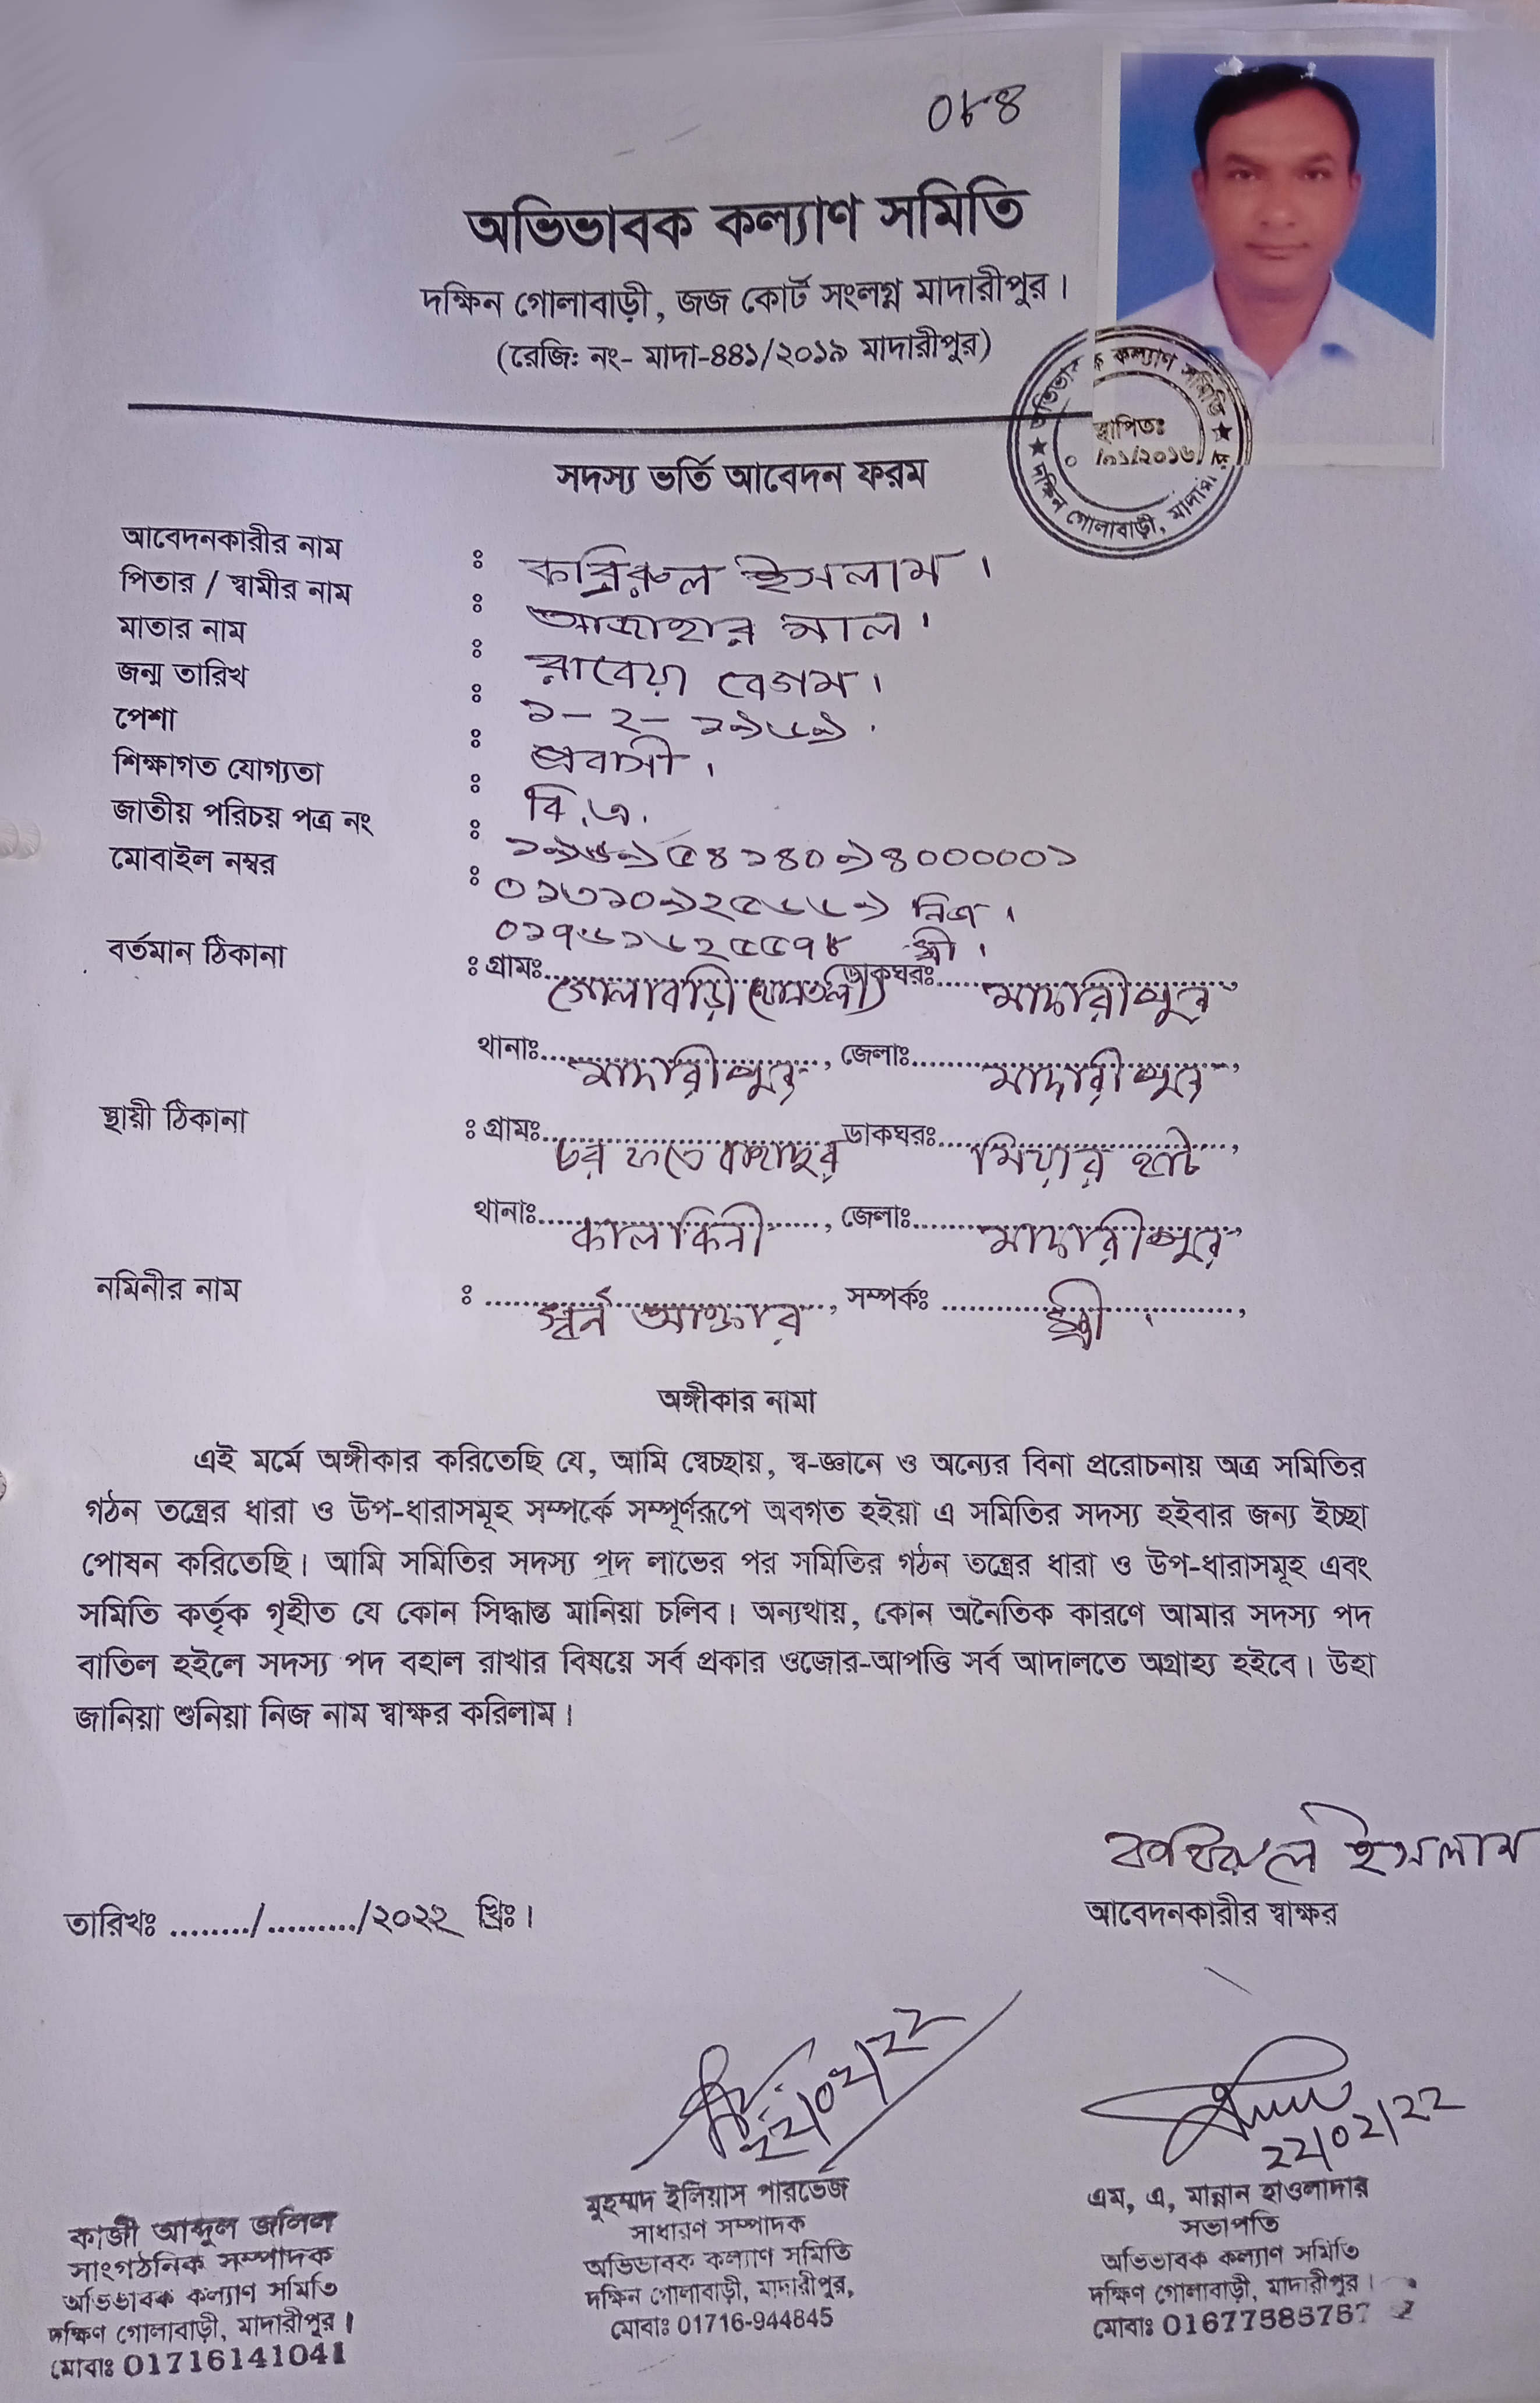 ০৮৪
অভিভাবক কল্যাণ সমিতি
দক্ষিন গোলাবাড়ী, জজ কোর্ট সংলগ্ন মাদারীপুর।
(রেজি: নং- মাদা-৪৪১/২০১৯ মাদারীপুর)
অভিভাবক কল্যাণ সমিতি
স্থাপিতঃ
/০১/২০১৬
দক্ষিন গোলাবাড়ী, মাদারীপুর
সদস্য ভর্তি আবেদন ফরম
আবেদনকারীর নাম : কবিরুল ইসলাম।
পিতার / স্বামীর নাম : আজাহার মাল।
মাতার নাম : রাবেয়া বেগম।
জন্ম তারিখ : ১-২-১৯৬৯.
পেশা : প্রবাসী।
শিক্ষাগত যোগ্যতা : বি.এ.
জাতীয় পরিচয় পত্র নং : ১৯৬৯৫৪১৪০৯৪০০০০০১
মোবাইল নম্বর : ০১৩১০৯২৫৬৬৯ নিজ।
০১৭৬১৬২৫৫৭৮ স্ত্রী।
বর্তমান ঠিকানা : গ্রামঃ গোলাবাড়ী ডাকঘরঃ মাদারীপুর,
থানাঃ মাদারীপুর, জেলাঃ মাদারীপুর,
স্থায়ী ঠিকানা : গ্রামঃ চর ফতে বাহাদুর ডাকঘরঃ মিয়ার হাট,
থানাঃ কালকিনী, জেলাঃ মাদারীপুর,
নমিনীর নাম : স্বর্ন আক্তার, সম্পর্কঃ স্ত্রী,
অঙ্গীকার নামা
এই মর্মে অঙ্গীকার করিতেছি যে, আমি স্বেচ্ছায়, স্ব-জ্ঞানে ও অন্যের বিনা প্ররোচনায় অত্র সমিতির
গঠন তন্ত্রের ধারা ও উপ-ধারাসমূহ সম্পর্কে সম্পূর্ণরূপে অবগত হইয়া এ সমিতির সদস্য হইবার জন্য ইচ্ছা
পোষন করিতেছি। আমি সমিতির সদস্য পদ লাভের পর সমিতির গঠন তন্ত্রের ধারা ও উপ-ধারাসমূহ এবং
সমিতি কর্তৃক গৃহীত যে কোন সিদ্ধান্ত মানিয়া চলিব। অন্যথায়, কোন অনৈতিক কারণে আমার সদস্য পদ
বাতিল হইলে সদস্য পদ বহাল রাখার বিষয়ে সর্ব প্রকার ওজোর-আপত্তি সর্ব আদালতে অগ্রাহ্য হইবে। উহা
জানিয়া শুনিয়া নিজ নাম স্বাক্ষর করিলাম।
কবিরুল ইসলাম
তারিখঃ ......../........./২০২২ খ্রিঃ।
আবেদনকারীর স্বাক্ষর
22/02/22
22/02/22
কাজী আব্দুল জলিল
সাংগঠনিক সম্পাদক
অভিভাবক কল্যাণ সমিতি
দক্ষিণ গোলাবাড়ী, মাদারীপুর।
মোবাঃ 01716141041
মুহম্মদ ইলিয়াস পারভেজ
সাধারণ সম্পাদক
অভিভাবক কল্যাণ সমিতি
দক্ষিন গোলাবাড়ী, মাদারীপুর,
মোবাঃ 01716-944845
এম, এ, মান্নান হাওলাদার
সভাপতি
অভিভাবক কল্যাণ সমিতি
দক্ষিণ গোলাবাড়ী, মাদারীপুর।
মোবাঃ